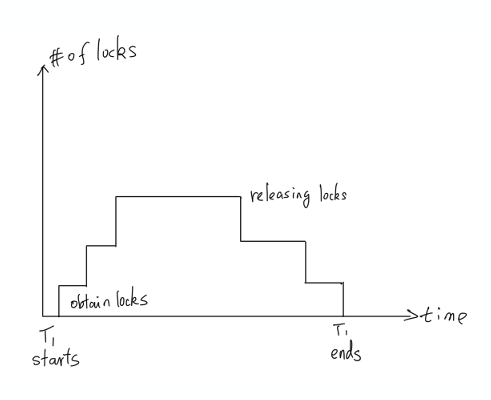 # of locks
releasing locks
obtain locks
time
T1
starts
T1
ends